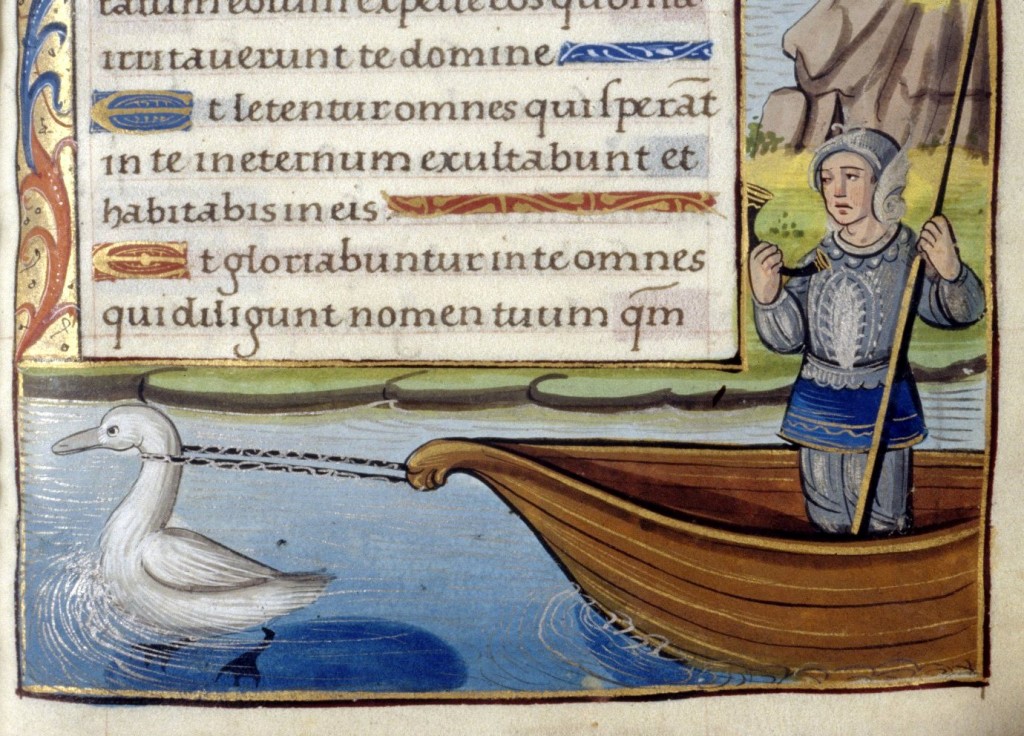 irritauerunt te domine
t letentur omnes qui sperāt
in te in eternum exultabunt et
habitabis in eis.
t gloriabuntur in te omnes
qui diligunt nomen tuum qm̄